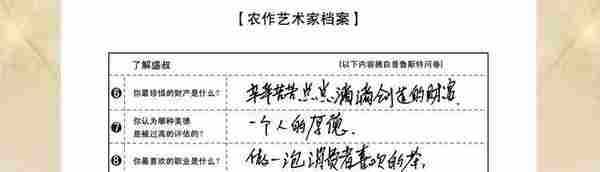 【农作艺术家档案】
了解盛叔 (以下内容摘自普鲁斯特问卷)
⑥ 你最珍惜的财产是什么? 辛辛苦苦点点滴滴创造的财富.
⑦ 你认为哪种美德
是被过高的评估的? 一个人的厚德.
⑧ 你最喜欢的职业是什么? 做一泡消费者喜欢的茶.